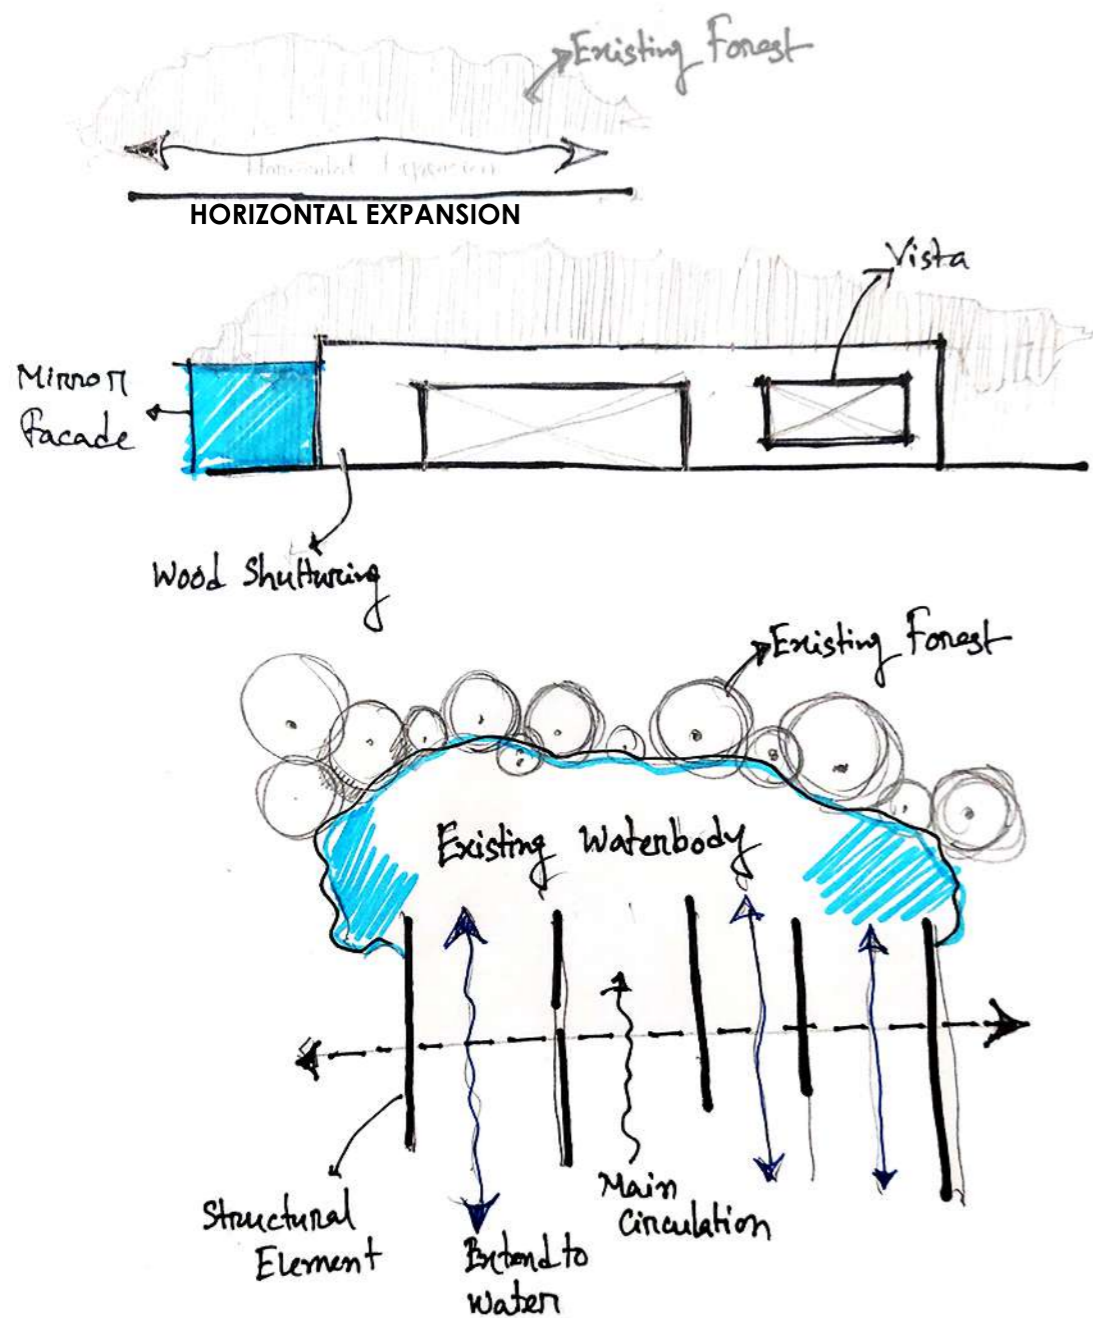 Existing Forest
Horizontal Expansion
HORIZONTAL EXPANSION
Vista
Mirror
facade
Wood Shutturing
Existing Forest
Existing Waterbody
Structural
Element
Extend to
water
Main
Circulation